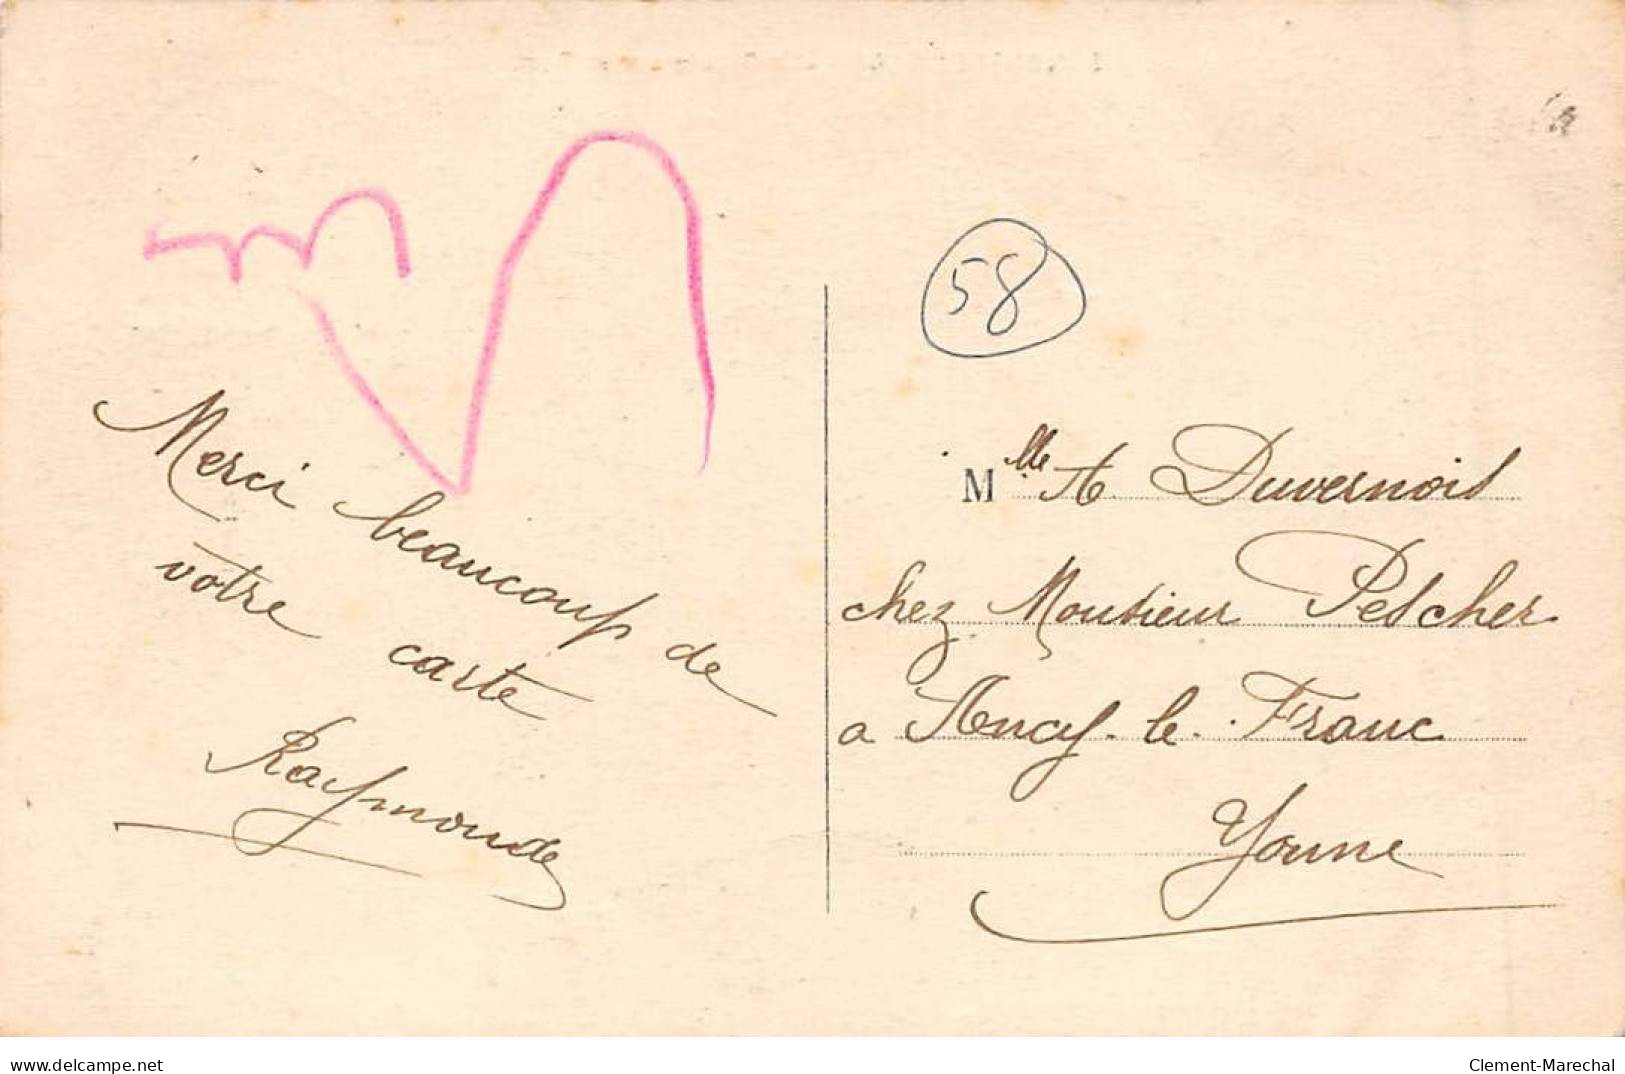 58
Merci beaucoup de
votre carte
Raymonde
Mlle A. Duvernois
chez Monsieur Pescher
a Ancy-le-Franc
Yonne
www.delcampe.net
Clement-Marechal